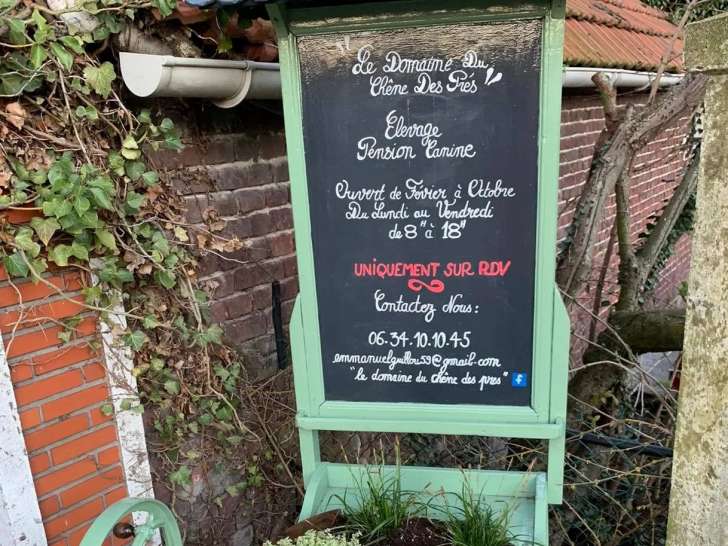 "Le Domaine Du
Chêne Des Prés"
Elevage
Pension Canine
Ouvert de Fevier à Octobre
Du Lundi au Vendredi
de 8ʰ à 18ʰ
UNIQUEMENT SUR RDV
Contactez Nous :
06-34-10-10-45
emmanuelguillou59@gmail-com
"le domaine du chêne des pres" f